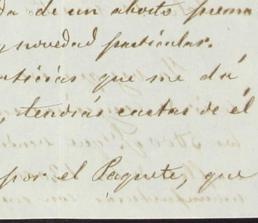 da de un aborto prema
y novedad particular.
oticias que me dá
, tendrás cartas de él
por el Paquete, que